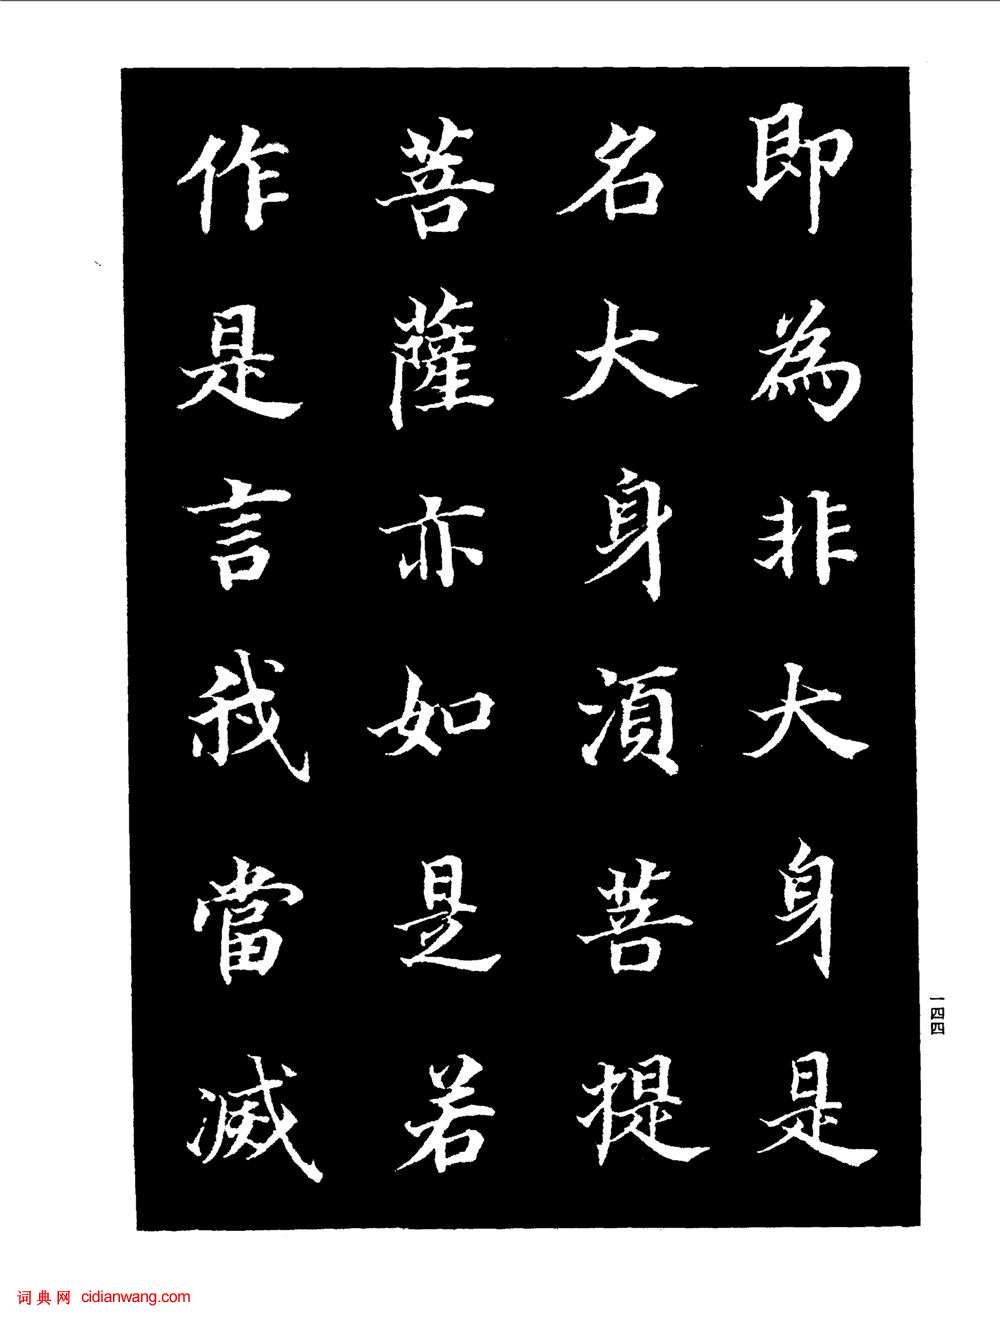 即為非大身是
名大身湏菩提
菩薩亦如是若
作是言我當滅
一四四
词典网 cidianwang.com